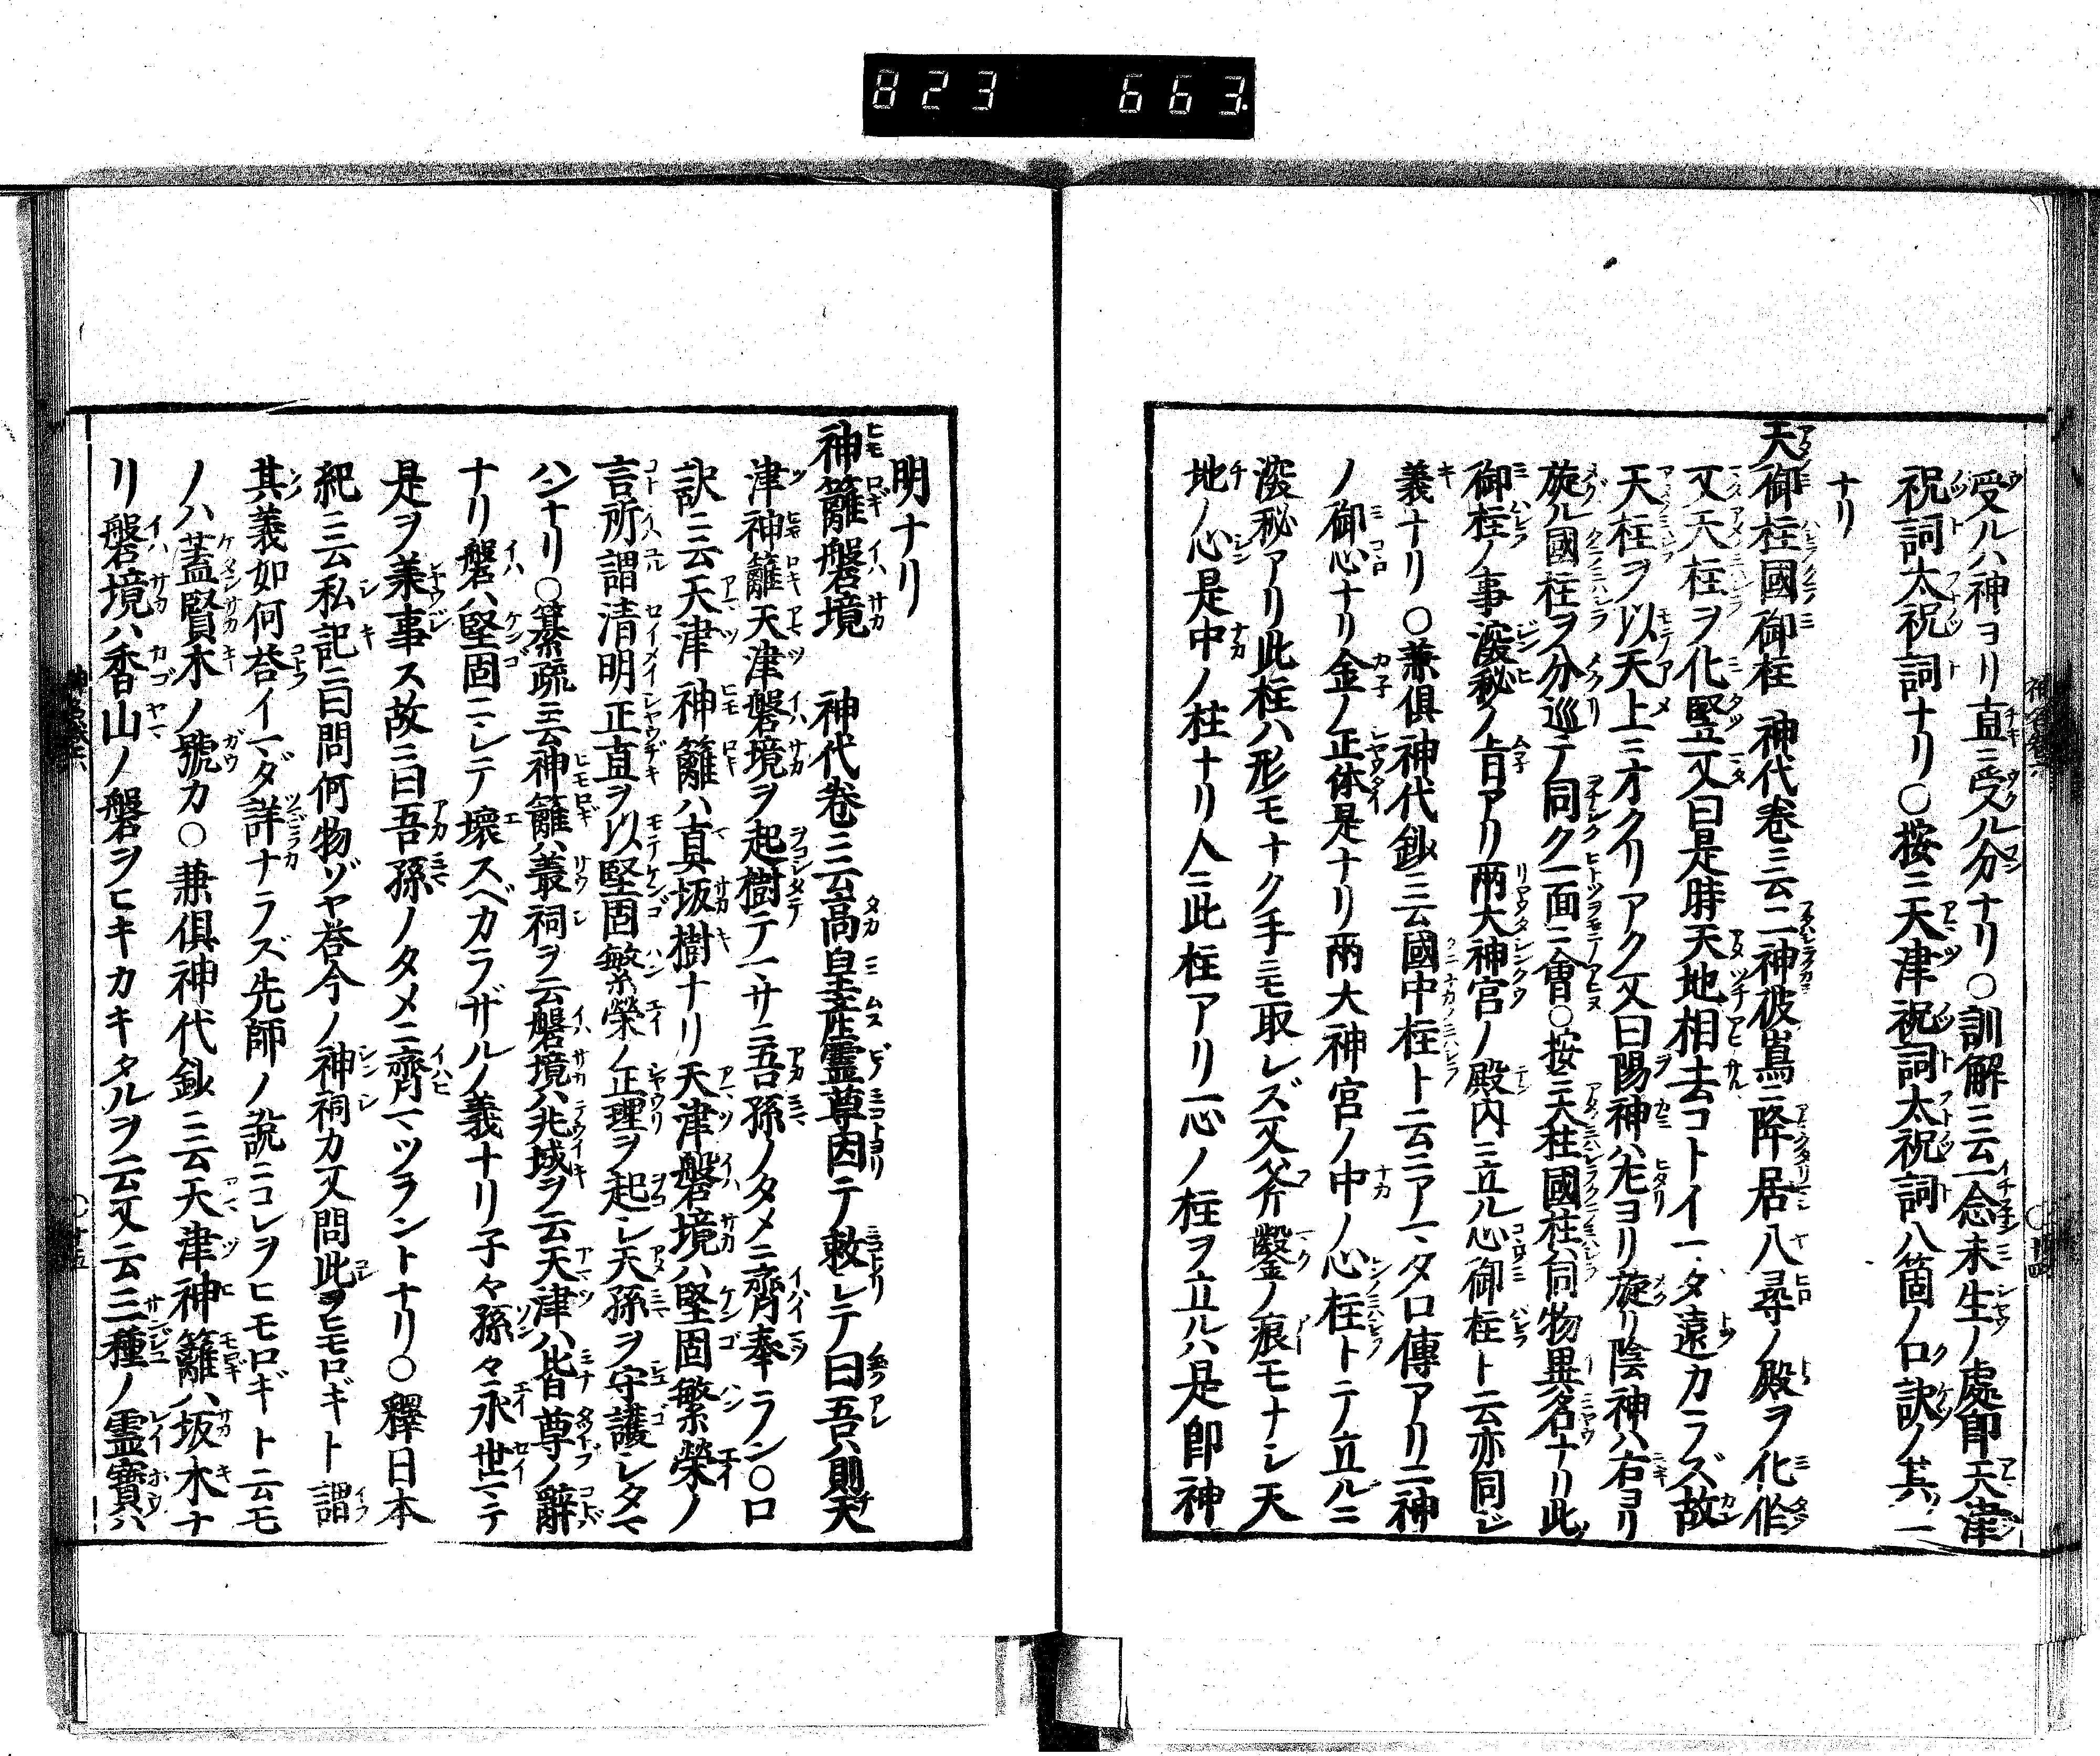 823 663
受ルハ神ヨリ直ニ受ル分ナリ○訓解ニ云一念未生ノ處即天津
祝詞太祝詞ナリ○按ニ天津祝詞太祝詞八箇ノ口訣ノ其ノ一
ナリ
天御柱國御柱 神代巻ニ云二神彼嶌ニ降居八尋ノ殿ヲ化作
又天柱ヲ化竪又曰是時天地相去コトイマタ遠カラズ故
天柱ヲ以天上ニオクリアク又曰陽神ハ左ヨリ旋リ陰神ハ右ヨリ
旋ル國柱ヲ分巡テ同ク一面ニ會○按ニ天柱國柱ハ同物異名ナリ此
御柱ノ事深秘ノ旨アリ兩大神宮ノ殿内ニ立ル心御柱ト云亦同ジ
義ナリ○兼俱神代鈔ニ云國中柱ト云ニアマタ口傳アリ二神
ノ御心ナリ金ノ正体是ナリ兩大神宮ノ中ノ心柱トテ立ルニ
深秘アリ此柱ハ形モナク手ニモ取レズ又斧鑿ノ痕モナシ天
地ノ心是中ノ柱ナリ人ニ此柱アリ一心ノ柱ヲ立ルハ是即神
明ナリ
神籬磐境 神代巻ニ云高皇産霊尊因テ敕シテ曰吾ハ則天
津神籬天津磐境ヲ起樹テマサニ吾孫ノタメニ齋奉ラン○口
訣ニ云天津神籬ハ真坂樹ナリ天津磐境ハ堅固繁榮ノ
言所謂清明正直ヲ以堅固繁榮ノ正理ヲ起シ天孫ヲ守護シタマ
ハンナリ○纂疏ニ云神籬ハ叢祠ヲ云磐境ハ兆域ヲ云天津ハ皆尊ノ辭
ナリ磐ハ堅固ニシテ壞スベカラザルノ義ナリ子々孫々永世マテ
是ヲ兼事ス故ニ曰吾孫ノタメニ齋マツラントナリ○釋日本
紀ニ云私記ニ曰問何物ゾヤ答今ノ神祠カ又問此ヲヒモロギト謂
其義如何答イマダ詳ナラズ先師ノ說ニコレヲヒモロギト云モ
ノハ蓋賢木ノ號カ○兼俱神代鈔ニ云天津神籬ハ坂木ナ
リ磐境ハ香山ノ磐ヲヒキカキタルヲ云又云三種ノ霊寶ハ